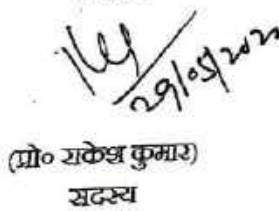 29/05/2022
(प्रो० राकेश कुमार)
सदस्य